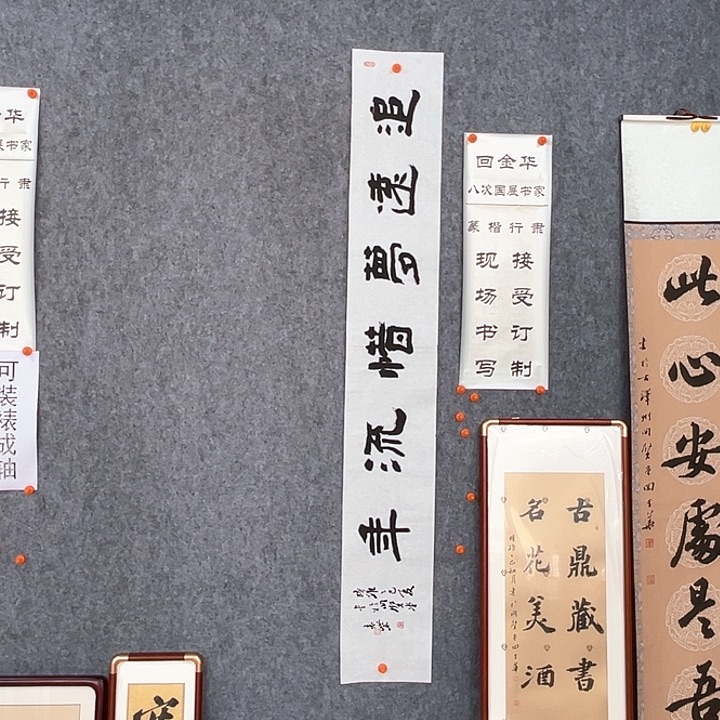 华
展书家
行 隶
接
受
订
制
可
装
裱
成
轴
追逐梦惜流年
回金华
八次国展书家
篆楷行隶
现场书写
接受订制
古鼎藏书
名花美酒
此心安处是吾